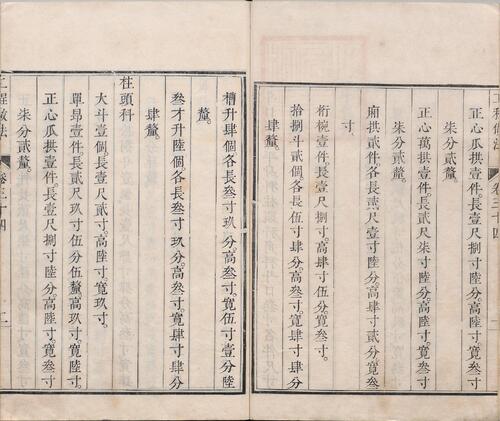 正心瓜拱壹件。長壹尺捌寸陸分。高陸寸。寬叁寸
柒分貳釐。
正心萬拱壹件。長貳尺柒寸陸分。高陸寸。寬叁寸
柒分貳釐。
廂拱貳件。各長貳尺壹寸陸分。高肆寸貳分。寬叁
寸。
桁椀壹件。長壹尺捌寸。高肆寸伍分。寬叁寸。
拾捌斗貳個。各長伍寸肆分。高叁寸。寬肆寸肆分
肆釐。
槽升肆個。各長叁寸玖分。高叁寸。寬伍寸壹分陸
釐。
叁才升陸個。各長叁寸玖分。高叁寸。寬肆寸肆分
肆釐。
柱頭科
大斗壹個。長壹尺貳寸。高陸寸。寬玖寸。
單昂壹件。長貳尺玖寸伍分伍釐。高玖寸。寬陸寸。
正心瓜拱壹件。長壹尺捌寸陸分。高陸寸。寬叁寸
柒分貳釐。
工程做法
卷三十四